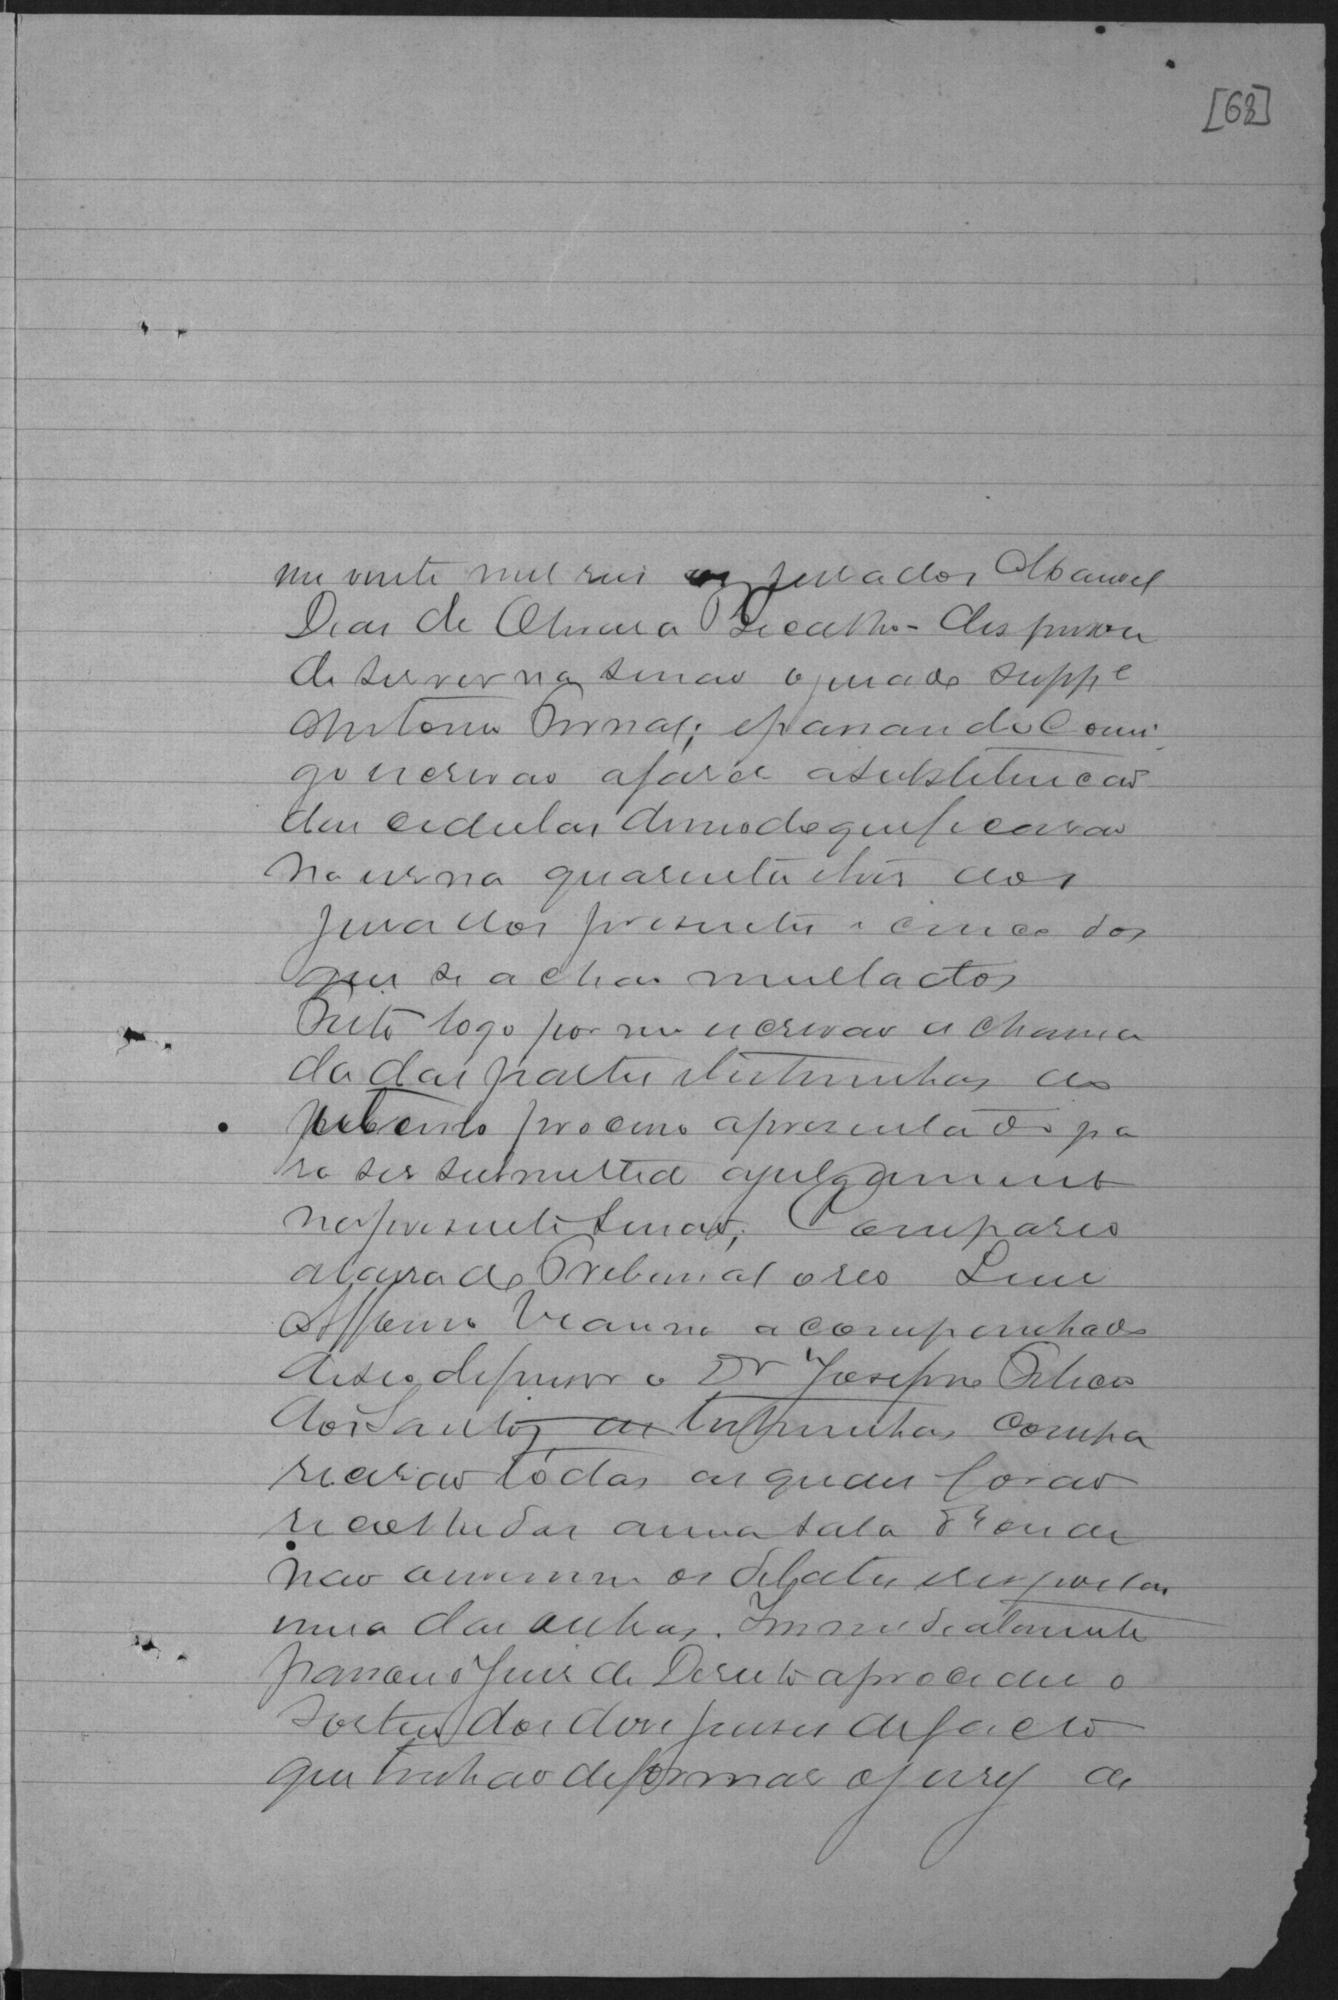 [68]
em vinte mil reis os jurados Manoel
Dias de Oliveira dispensou
de servir na sessão o jurado supp.e
Antonio ; e passando comi
go escrivão a fazer a substituição
das cedulas de modo que ficarão
na urna quarenta e tres dos
jurados presentes e cinco dos
que se achão multados
Feito logo por mim escrivão a chama
da das partes e testemunhas do
processo apresentado pa
ra ser submettido a julgamento
na presente sessão; Compareceo
a barra do Tribunal o reo Luis
Affonso Vianna acompanhado
de seo defensor o Dr Josephino
dos Santos as testemunhas compa
recerão todas as quaes forão
recolhidas a uma sala d'onde
não ouvissem os debates e respostas
umas das outras. Immediatamente
passou o Juiz de Direito a proceder o
sorteio dos doze juizes de facto
que tinhão de formar o jury de